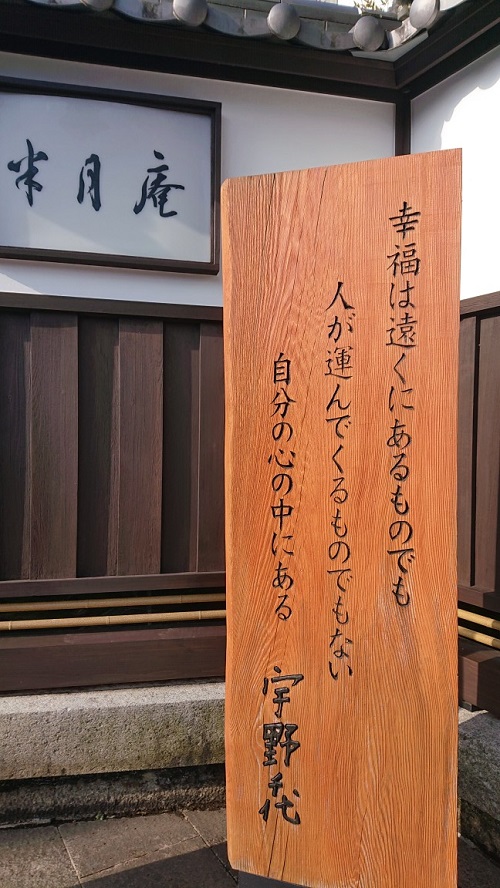 半月庵
幸福は遠くにあるものでも
人が運んでくるものでもない
自分の心の中にある
宇野千代